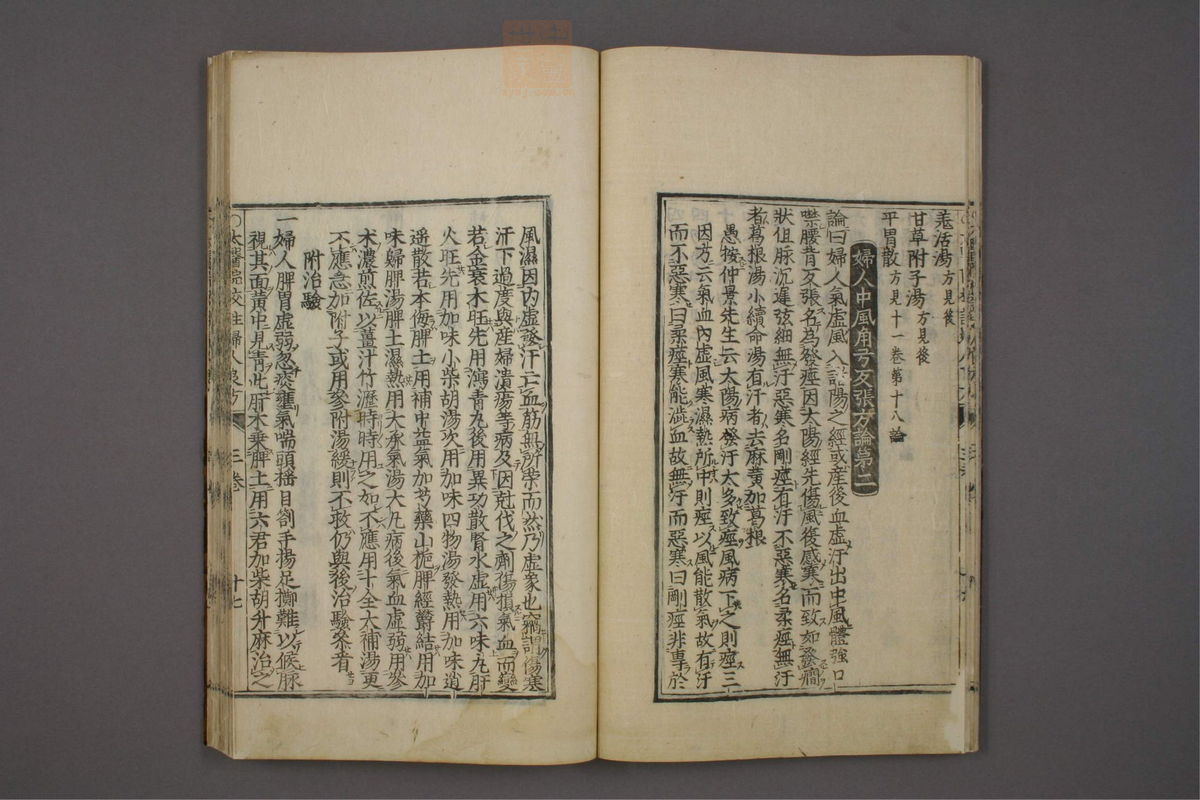 羗活湯方見後
甘草附子湯方見後
平胃散方見十一卷第十八論
婦人中風角弓反張方論第二
論曰婦人氣虛風入諸陽之經或産後血虛汗出中風體強口
噤腰背反張名為發痙因太陽經先傷風後感寒而致如發癎
狀但脉沉遲弦細無汗惡寒名剛痙有汗不惡寒名柔痙無汗
者葛根湯小續命湯有汗者去麻黃加葛根
愚按仲景先生云太陽病發汗太多致痙風病下之則痙三
因方云氣血內虛風寒濕熱所中則痙以風能散氣故有汗
而不惡寒曰柔痙寒能澁血故無汗而惡寒曰剛痙非專於
風濕因內虛發汗亡血筋無所榮而然乃虛象也竊謂傷寒
汗下過度與産婦潰瘍等病及因尅伐之劑傷損氣血而變
若金衰木旺先用瀉青丸後用異功散腎水虛用六味丸肝
火旺先用加味小柴胡湯次用加味四物湯發熱用加味逍
遥散若木侮脾土用補中益氣加芍藥山梔脾經欝結用加
味歸脾湯脾土濕熱用大承氣湯大凡病後氣血虛弱用參
术濃煎佐以薑汁竹瀝時時用之如不應用十全大補湯更
不應急加附子或用參附湯緩則不救仍與後治驗參看
附治驗
一婦人脾胃虛弱忽痰壅氣喘頭揺目劄手揚足擲難以候脉
視其面黃中見青此肝木乗脾土用六君加柴胡升麻治之
〇太醫院校註婦人良方
三卷
十七